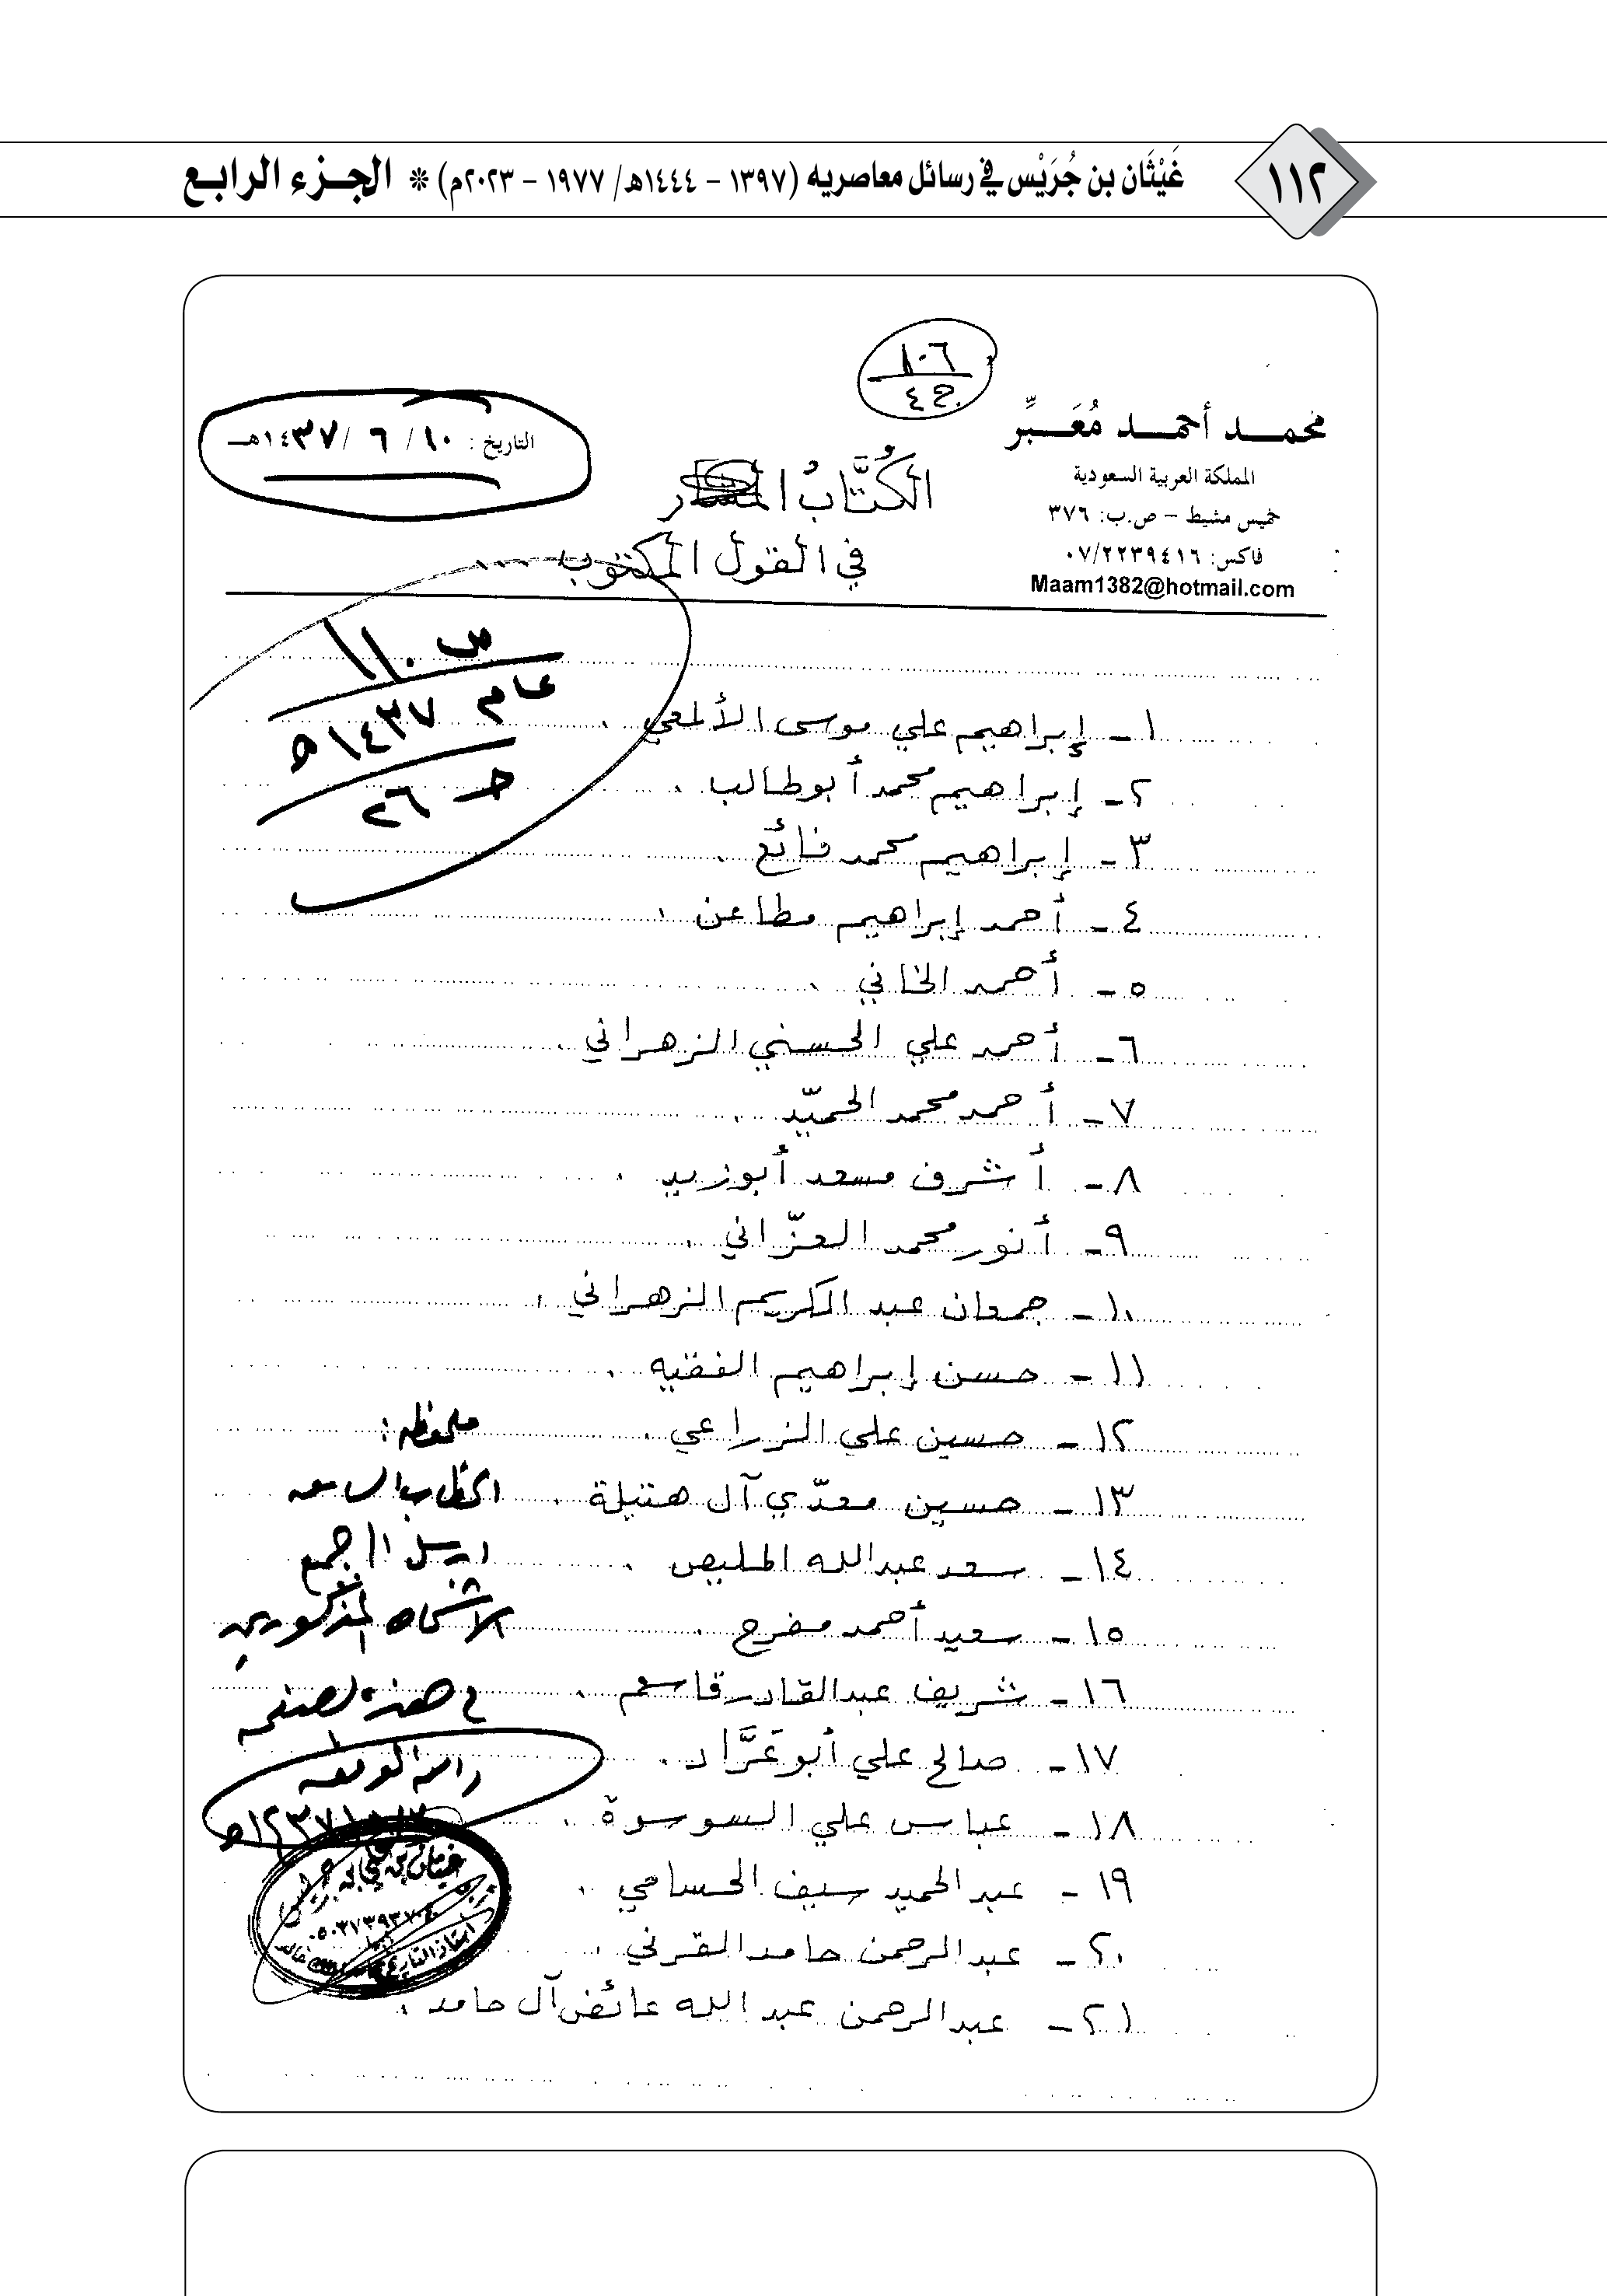 ١١٢
غَيْثَان بن جُرَيْس في رسائل معاصريه (١٣٩٧ - ١٤٤٤هـ/ ١٩٧٧ - ٢٠٢٣م) * الجزء الرابع
١٠٦
ج ٤
محمد أحمد مُعَبِّر
المملكة العربية السعودية
خميس مشيط - ص.ب: ٣٧٦
فاكس: ٠٧/٢٢٣٩٤١٦
Maam1382@hotmail.com
التاريخ : ١٠/ ٦ /١٤٣٧هـ
الكُتَّابُ
في القول المكتوب ...
س ١١٠
عام ١٤٣٧هـ
حـ ٢٦
١- إبراهيم علي موسى الألمعي .
٢- إبراهيم محمد أبوطالب .
٣- إبراهيم محمد فائع .
٤- أحمد إبراهيم مطاعن .
٥- أحمد الخاني .
٦- أحمد علي الحسني الزهراني .
٧- أحمد محمد الحميّد .
٨- أشرف مسعد أبوزيد .
٩- أنور محمد العزّاني .
١٠- جمعان عبد الكريم الزهراني .
١١- حسن إبراهيم الفقيه .
١٢- حسين علي الزراعي .
١٣- حسين معدّي آل هتيلة .
١٤- سعد عبدالله المليص .
١٥- سعيد أحمد مفرح .
١٦- شريف عبدالقادر قاسم .
١٧- صالح علي أبوعَرَّاد .
١٨- عباس علي السوسوة .
١٩- عبد الحميد سيف الحسامي .
٢٠- عبد الرحمن حامد القرني .
٢١- عبد الرحمن عبد الله عائض آل حامد .
ملحوظة :
الخطاب السابق
أرسل إلى جميع
الأشخاص المذكورين
في هذه الصفحة
غيثان بن علي بن جريس
٠٥٠٣٧٣٩٣٧٠٤
أستاذ التاريخ